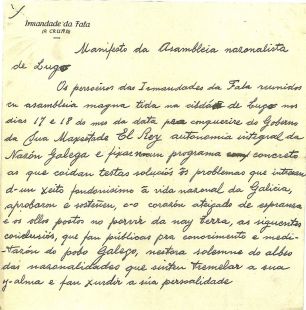 Irmandade da Fala
(A CRUÑA)
Manifesto da Asambleia nazonalista
de Lugo
Os persoeiros das Irmandades da Fala reunidos
en asambleia magna tida na cibdá de Lugo nos
dias 17 e 18 do mes da data pra conquerire do Goberno
da Sua Maxestade El Rey autonomia integral da
Nazón Galega e fixar un programa concreto
as que coidan testas solucións ôs problemas que intresan
d-un xeito fondonísimo â vida nazonal da Galicia,
aprobaron e sosteñen, c-o corazón ateigado de espranza
e os ollos postos no porvir da nay terra, as siguentes
conclusiós, que fan públicas pra conocimento e medi-
tazón do pobo Galego, nestora solemne do albeo
das nazonalidades que sinten tremelar a sua
y-alma e fan xurdir a súa persoalidade